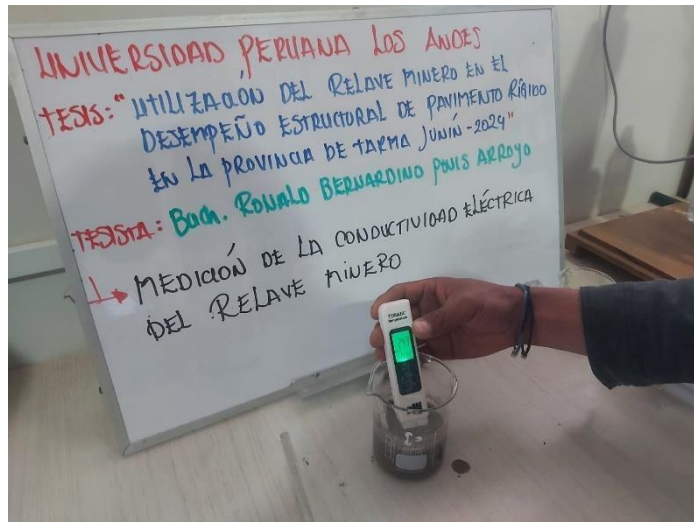 UNIVERSIDAD PERUANA LOS ANDES
TESIS: "UTILIZACIÓN DEL RELAVE MINERO EN EL
DESEMPEÑO ESTRUCTURAL DE PAVIMENTO RÍGIDO
EN LA PROVINCIA DE TARMA JUNÍN - 2024"
TESISTA: Bach. RONALD BERNARDINO PONIS ARROYO
MEDICIÓN DE LA CONDUCTIVIDAD ELÉCTRICA
DEL RELAVE MINERO